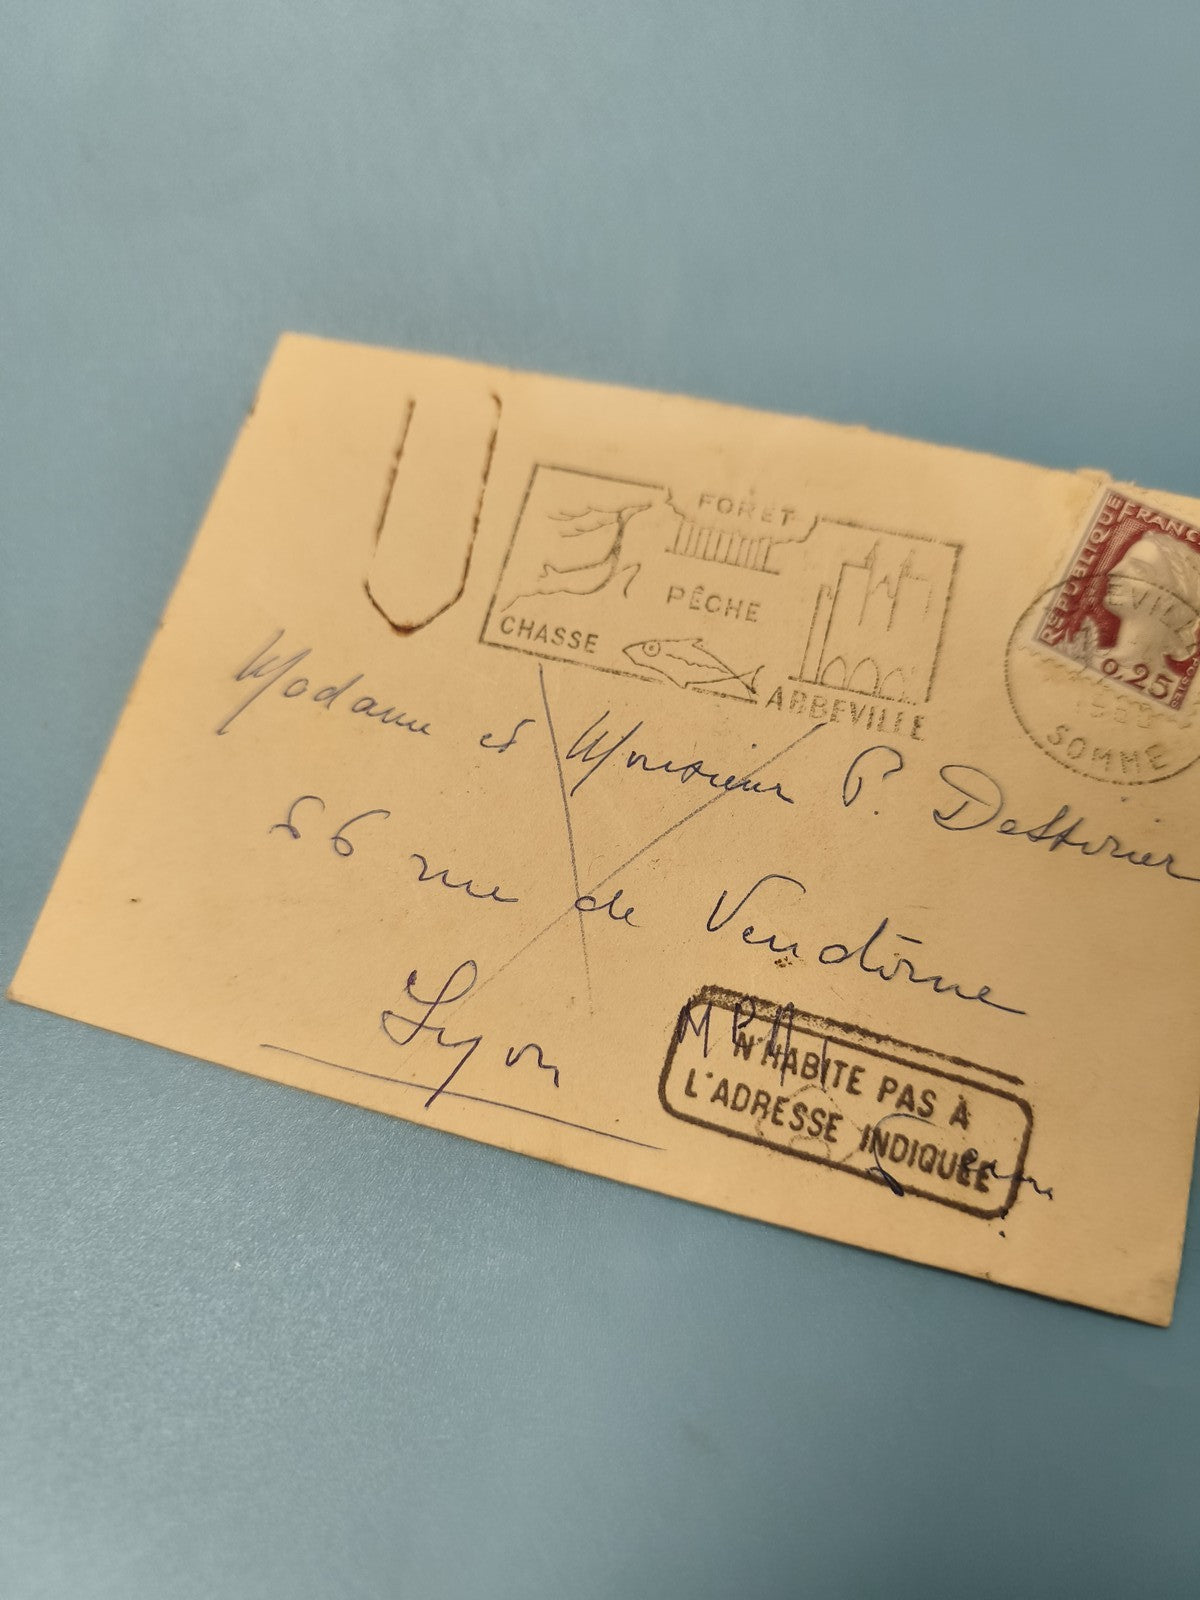 FORÊT
PÊCHE
CHASSE
ABBEVILLE
RÉPUBLIQUE FRANÇ
0,25
EVILL
SOMME
Madame et Monsieur P. Destirier
56 rue de Vendôme
Lyon
N'HABITE PAS À
L'ADRESSE INDIQUÉE